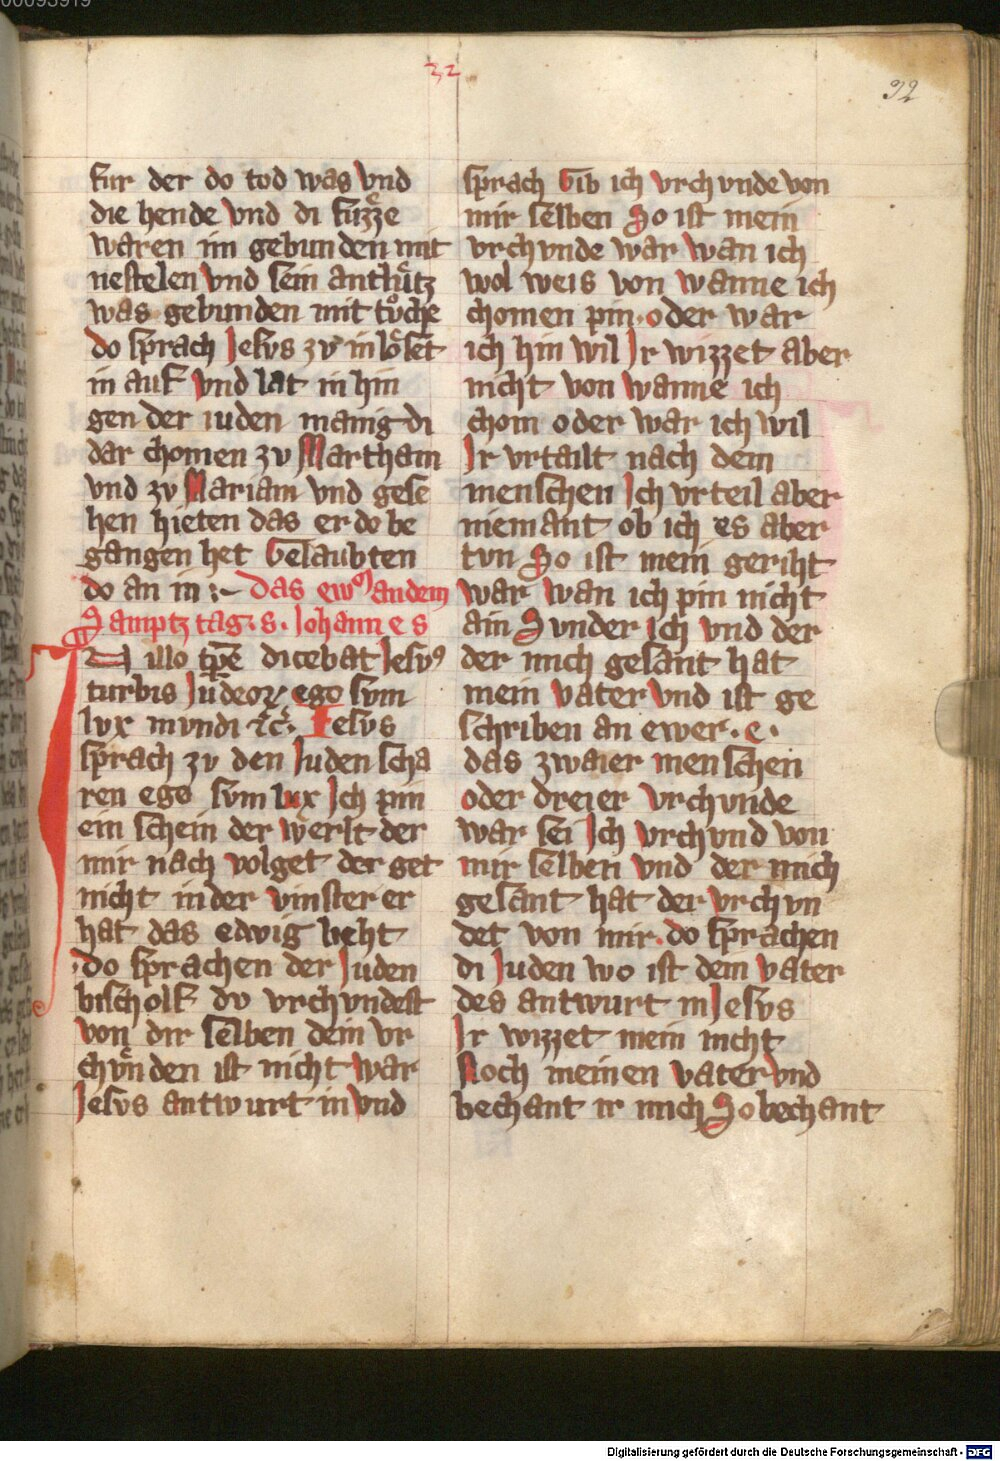 32
32
fur der do tod was vnd
die hende vnd di fuͤzze
waren im gebunden mit
nestelen vnd sein antluͤtz
was gebunden mit tuͦche
do sprach Jesvs zv in loͤset
in auf vnd lat in hin
gen der iuden manig di
dar chomen zv Martham
vnd zv Mariam vnd gese
hen hieten das er do be
gangen het Gelaubten
do an in :~ Das ewͣ an dem
Sampztag . s . Johannes
In illo tp̄e dicebat Jesvꝰ
turbis Judeoꝝ ego svm
lvx mvndi ⁊cͣ. Jesvs
sprach zv den Juden scha
ren ego svm lvx Ich pin
ein schein der werlt der
mir nach volget der get
nicht in der vinster er
hat das ewig lieht
do sprachen der Juden
bischolf dv vrchvndest
von dir selben dein vr
chuͤnden ist nicht war
Jesvs antwurt in vnd
sprach Gib ich vrchvnde von
mir selben So ist mein
vrchvnde war wan ich
wol weis von wanne ich
chomen pin . oder war
ich hin wil Ir wizzet aber
nicht von wanne ich
chom oder war ich wil
Ir vrtailt nach dem
menschen Ich vrteil aber
niemant ob ich es aber
tvn So ist mein geriht
war wan ich pin nicht
ain Svnder ich vnd der
der mich gesant hat
mein vater vnd ist ge
schriben an ewer . e .
das zwaier menschen
oder dreier vrchvnde
war sei Ich vrchvnd von
mir selben vnd der mich
gesant hat der vrchvn
det von mir . do sprachen
di Juden wo ist dein vater
des antwurt in Jesvs
Ir wizzet mein nicht
Noch meinen vater vnd
bechant ir mich So bechant
Digitalisierung gefördert durch die Deutsche Forschungsgemeinschaft - DFG